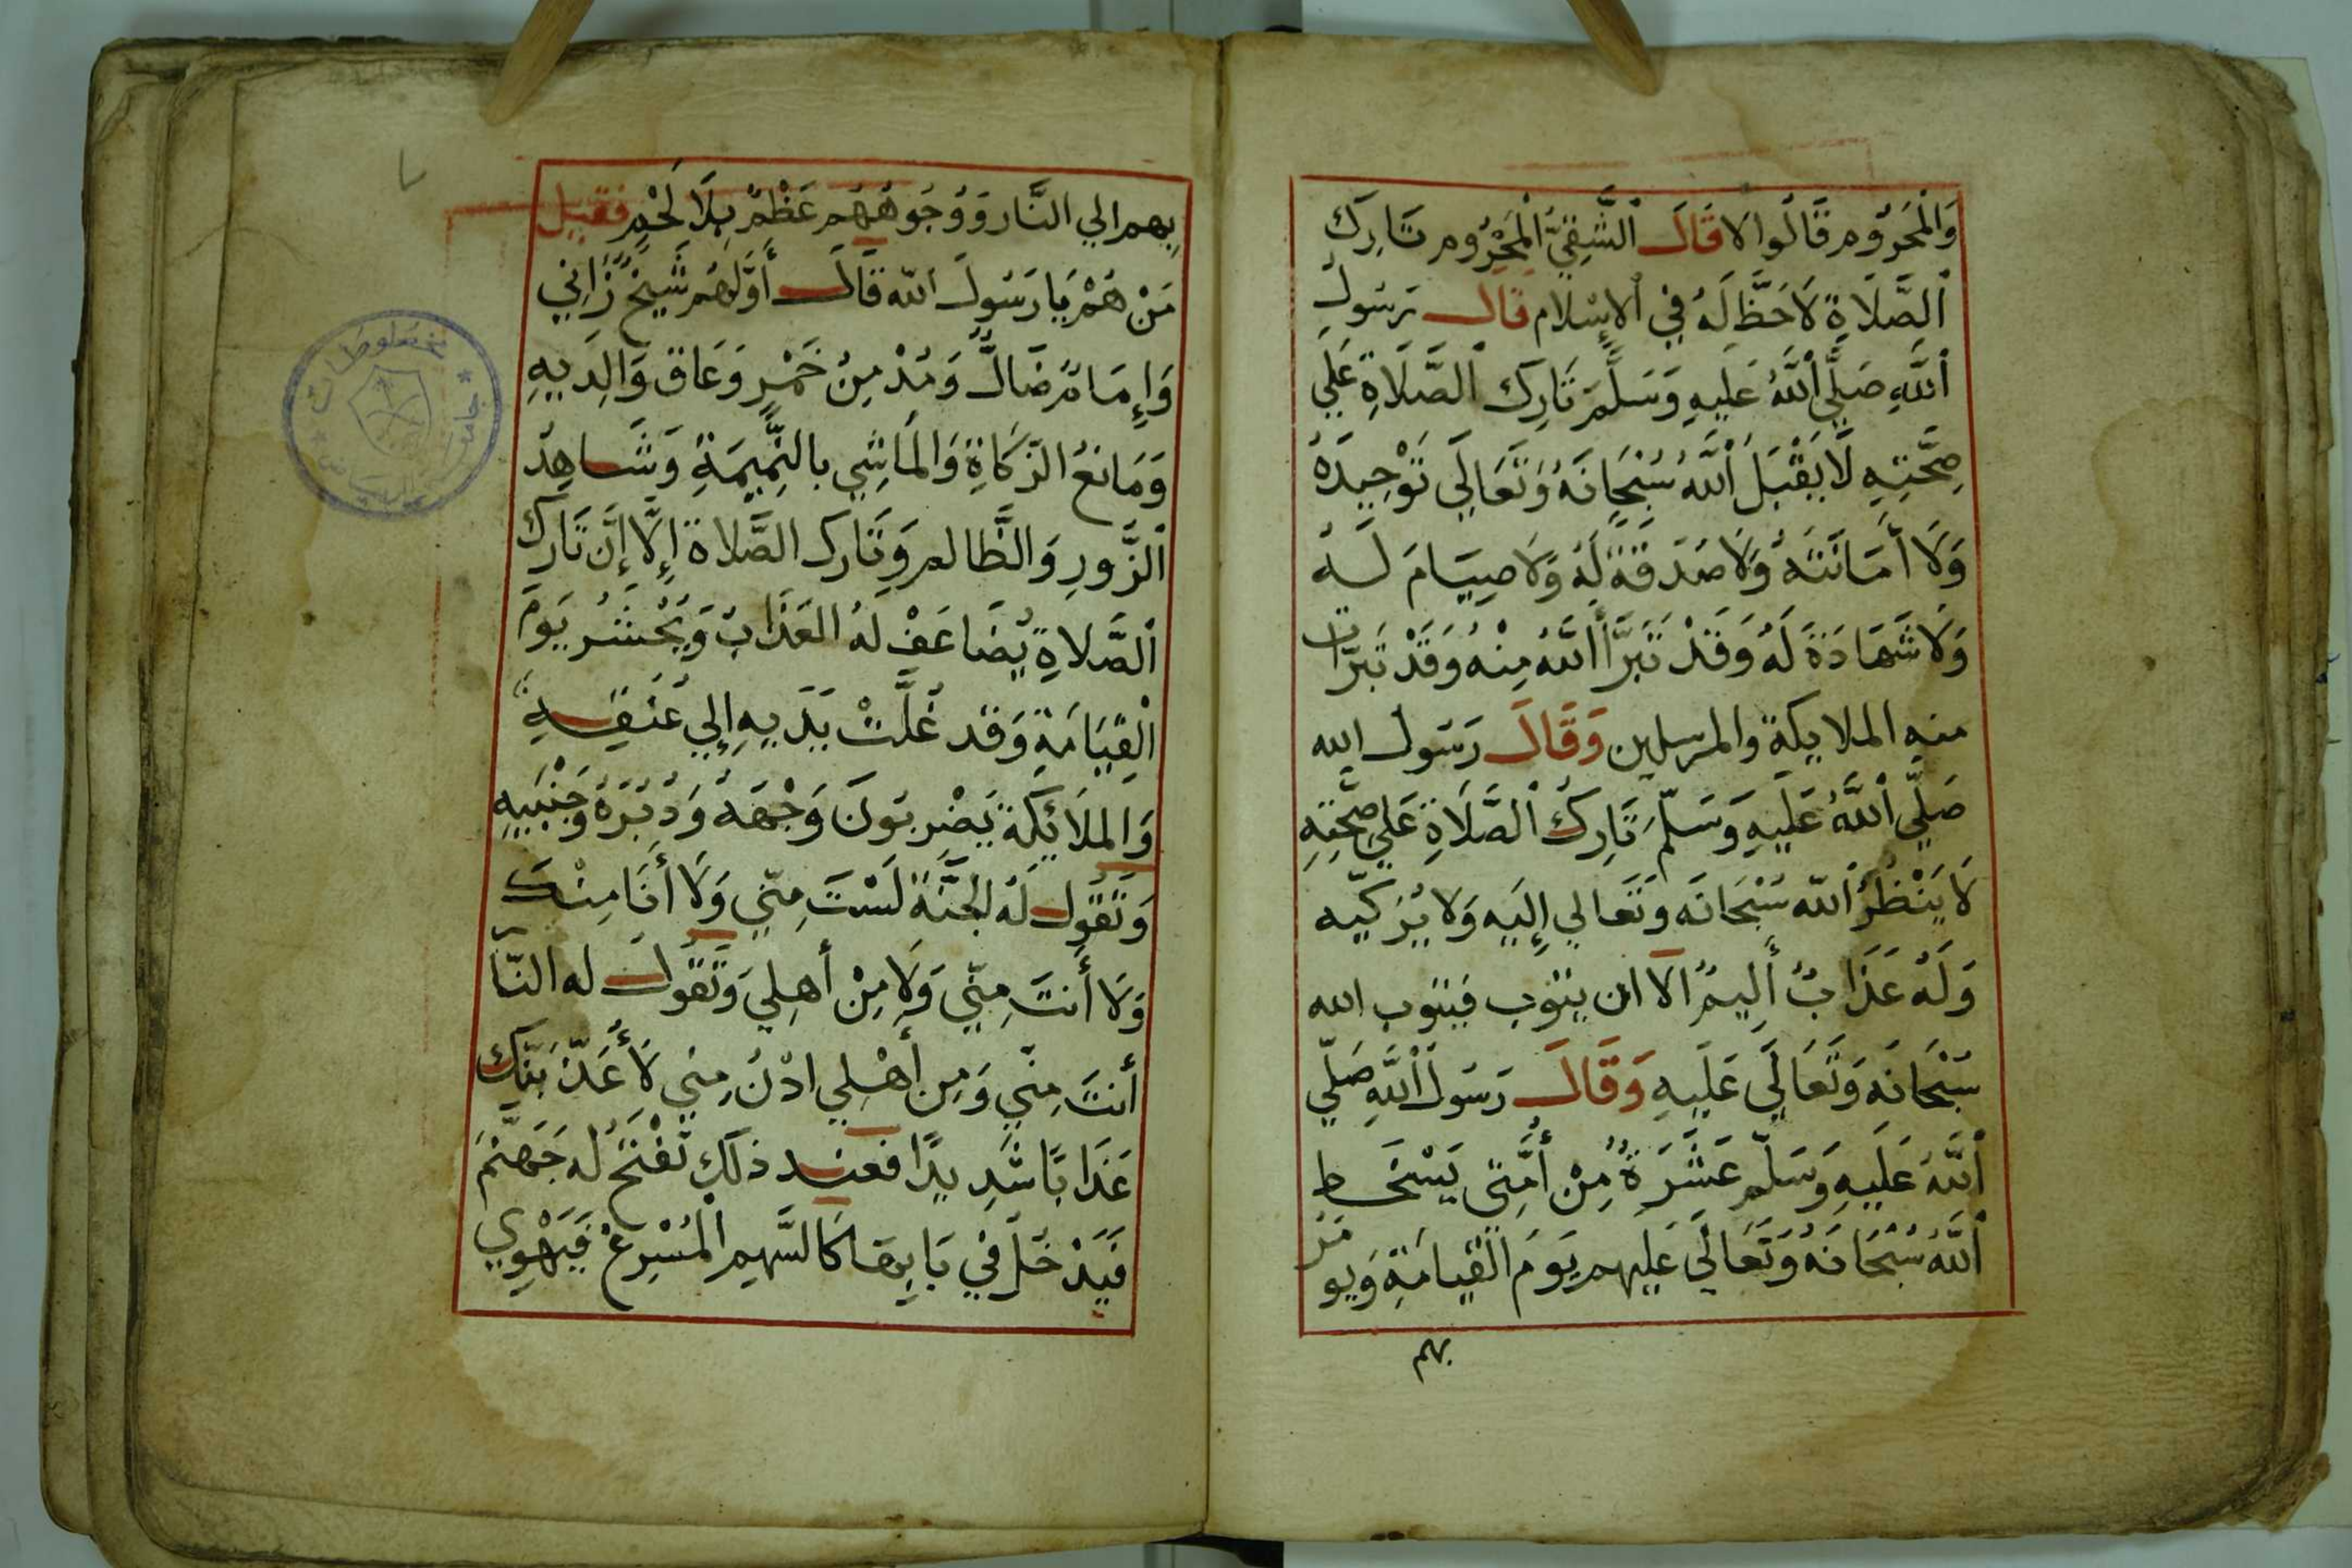 وَالْمَحْرُوْمِ قَالُوا لَا قَالَ الشَّقِيُّ الْمَحْرُومُ تَارِكُ
اَلصَّلَاةِ لَاحَظَّ لَهُ فِي الْإِسْلَام قَالَ رَسُولُ
اَللَّهِ صَلَّي اَللَّهُ عَلَيهِ وَسَلَّمَ تَارِك اَلصَّلَاةِ عَلَي
صِحَّتِهِ لَا يَقْبَلُ اَللَّهُ سُبْحَانَهُ وَتَعَالَي تَوْحِيدَهُ
وَلَا أَمَانَتَهُ وَلَا صَدَقَةَ لَهُ وَلَا صِيَامَ لَهُ
وَلَا شَهَادَةَ لَهُ وَقَدْ تَبَرَّأَ اَللَّهُ مِنْهُ وَقَدْ تَبَرَّاَت
منه الملايكة والمرسلين وَقَالَ رَسَول الله
صَلَّي اَللَّهُ عَلَيهِ وَسَلَّمَ تَارِكُ اَلصَّلَاةِ عَلَي صِحَّتِهِ
لَا يَنْظُرُ اَللّه سُبْحَانَه وَتَعَالي إِلَيهِ وَلَا يُزَكّيه
وَلَهُ عَذَابٌ أَلِيمٌ الَا ان يتوب فيتوب الله
سُبْحَانَه وَتَعَالَي عَلَيهِ وَقَالَ رَسَولُ اَللَّهِ صَلَّي
اَللَّهُ عَلَيهِ وَسَلّم عَشَرَةٌ مِنْ أُمَّتِي يَسْخَط
اَللَّهُ سُبْحَانَهُ وَتَعَالَي عَلَيهم يَومَ الْقِيَامَةِ وَيومَر
بهم
بِهم الي النَّار وَوُجُوهُهُم عَظْمٌ بِلَا لَحْمٍ فقيل
مَنْ هُمْ يَا رَسُولَ اَللّه قَالَ أَوَّلَهُم شَيْخٌ زَانِي
وَإِمَامٌ ضَالٌّ وَمُدْمِنُ خَمْرٍ وَعَاق وَالِدَيهِ
وَمَانعُ الزَّكَاةِ وَالمَاشِي بالنَّمِيمَةِ وَشَاهِدُ
اَلزَّورِ وَالظَّالم وَتَارك الصَّلاة إِلَّا إِنَّ تَارِكَ
اَلصَّلاةِ يُضَاعَف لهُ العَذَابُ وَيُحْشَرُ يَومَ
اَلقِيَامَةِ وَقد غُلَّتْ يَدَيهِ إِلي عُنُقِهِ
وَالمَلَائكَة يَضْرِبُونَ وَجْهَهُ وَدُبُرَهُ وَجَنْبَيهِ
وَتَقُول لَهُ الجَنَّة لَسْتَ مِنّي وَلَا أَنَا مِنْكَ
وَلَا أَنتَ مِنّي وَلَا مِنْ أَهلِي وَتَقُولُ له النّار
أَنتَ مِنّي وَمِن أَهْلِي ادْنُ مِنِي لَأُعَذّبَنَّكَ
عَذَابًا شَدِيدًا فعند ذلَكِ تُفْتَحُ له جَهَنَّمَ
فَيَدْخُلُ في بَابِهَا كَالسَّهمِ الْمُسْرِعْ فَيَهْوِي